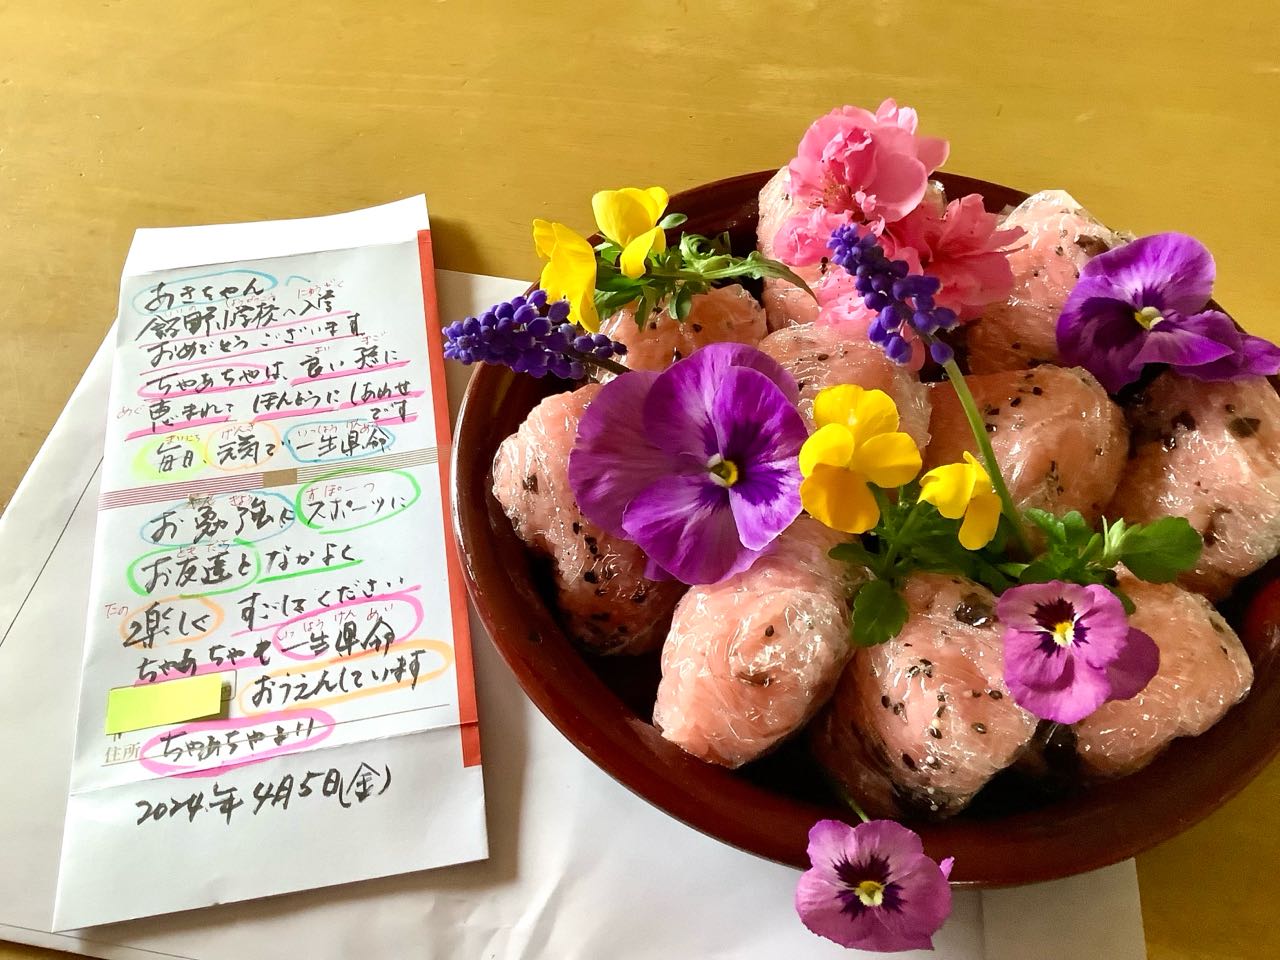 あきちゃん
鈴野小学校へ入学
おめでとうございます
ちゃあちゃは、良い孫に
恵まれて ほんとうに しあわせ
です
毎日、元気で一生県命
お勉強に スポーツに
お友達と なかよく
楽しく すごしてください
ちゃあちゃも 一生県命
おうえんしています
住所 ちゃあちゃより
2024年4月5日(金)